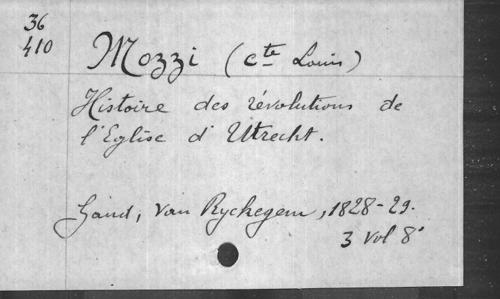 36
410
Mozzi (cte Louis)
Histoire des révolutions de
l'Eglise d'Utrecht.
Gand, Van Ryckegem, 1828-29.
3 vol 8°